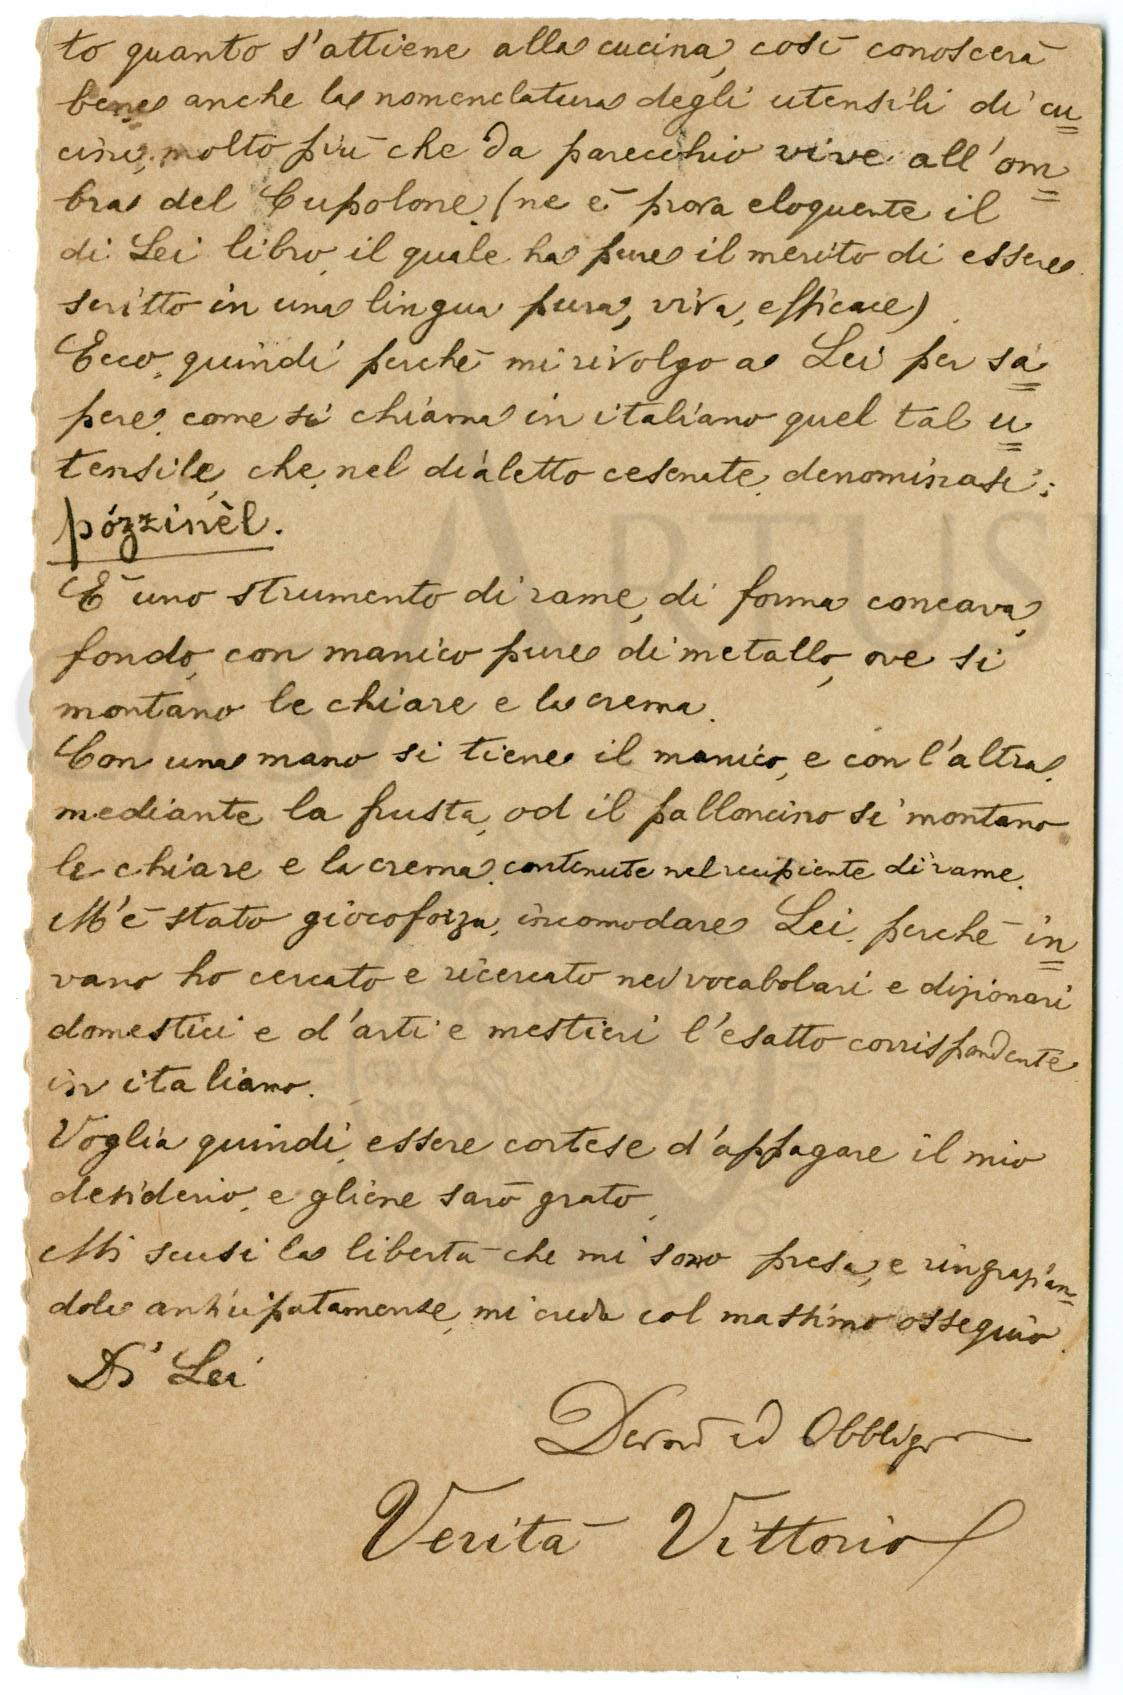 to quanto s'attiene alla cucina, così conoscerà
bene anche la nomenclatura degli utensili di cu=
cina, molto più che da parecchio vive all'om=
bra del Cupolone, (ne è prova eloquente il
di Lei libro, il quale ha pure il merito di essere
scritto in una lingua pura, viva, efficace).
Ecco, quindi perchè mi rivolgo a Lei per sa=
pere come si chiama in italiano quel tal u=
tensile, che, nel dialetto cesenate, denominasi:
pózzinèl.
È uno strumento di rame, di forma concava,
fondo, con manico pure di metallo, ove si
montano le chiare e la crema.
Con una mano si tiene il manico, e con l'altra,
mediante la frusta, od il palloncino si montano
le chiare e la crema, contenute nel recipiente di rame.
M'è stato giocoforza, incomodare Lei, perchè in=
vano ho cercato e ricercato nei vocabolari e dizionari
domestici e d'arti e mestieri l'esatto corrispondente
in italiano.
Voglia quindi, essere cortese d'appagare il mio
desiderio, e gliene sarò grato.
Mi scusi la libertà che mi sono presa, e ringrazian=
dola anticipatamente, mi creda col massimo ossequio.
Di Lei
Devmo ed Obbligmo
Verità Vittorio
ARTUSI